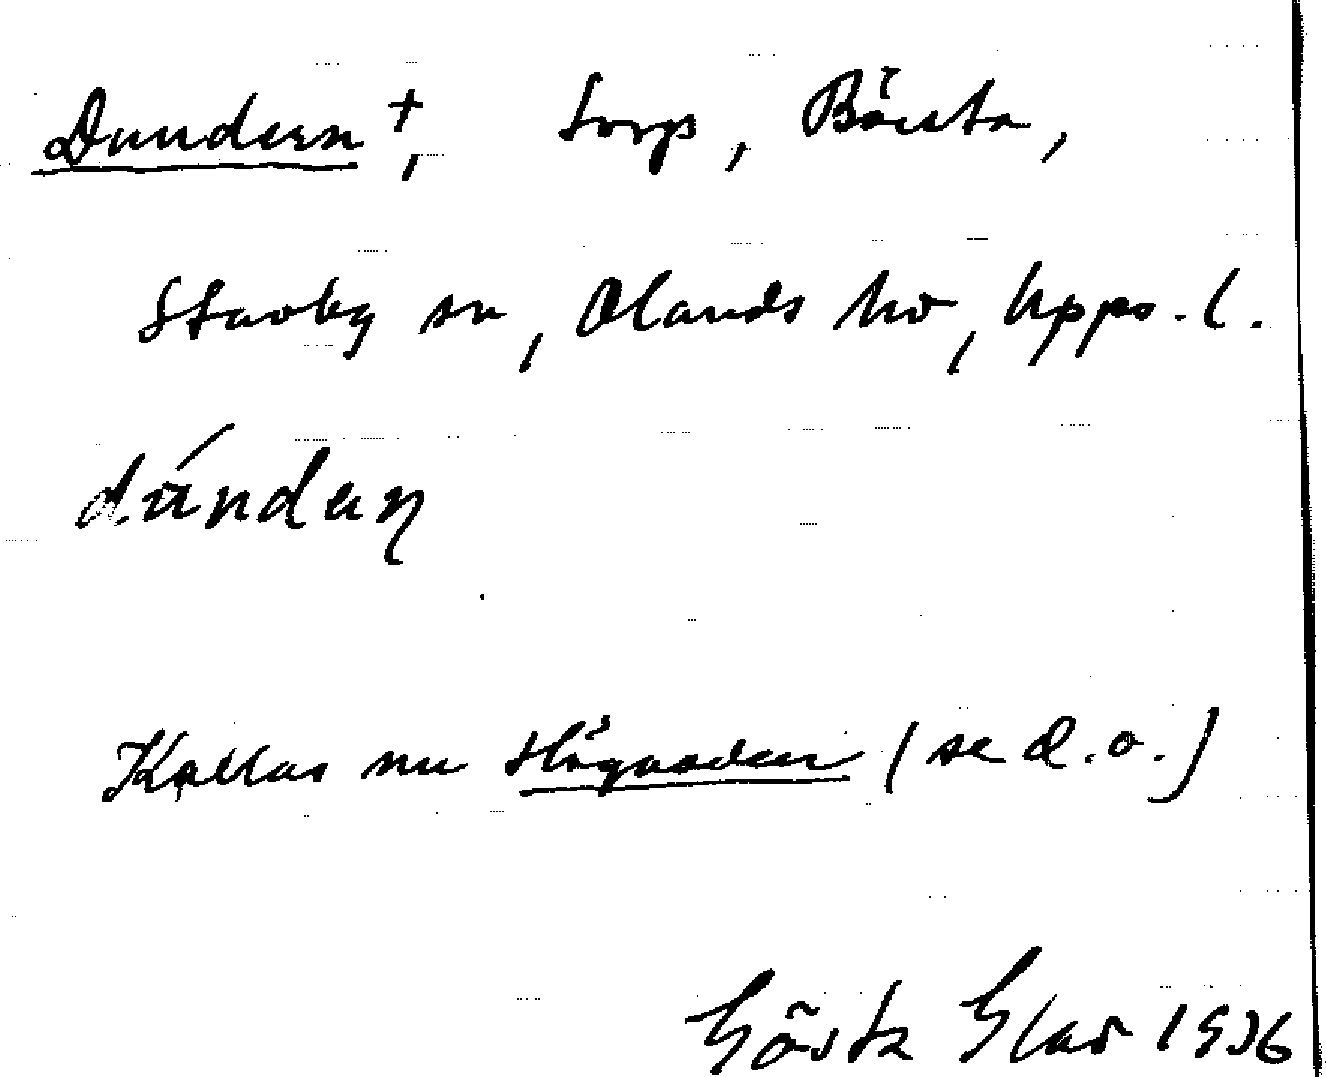 Dundern †, torp, Börsta,
Stavby sn, Olands hd, Upps. l.
dúndaɳ
Kallas nu Högvaden (se d.o.)
Gösta Elar 1936